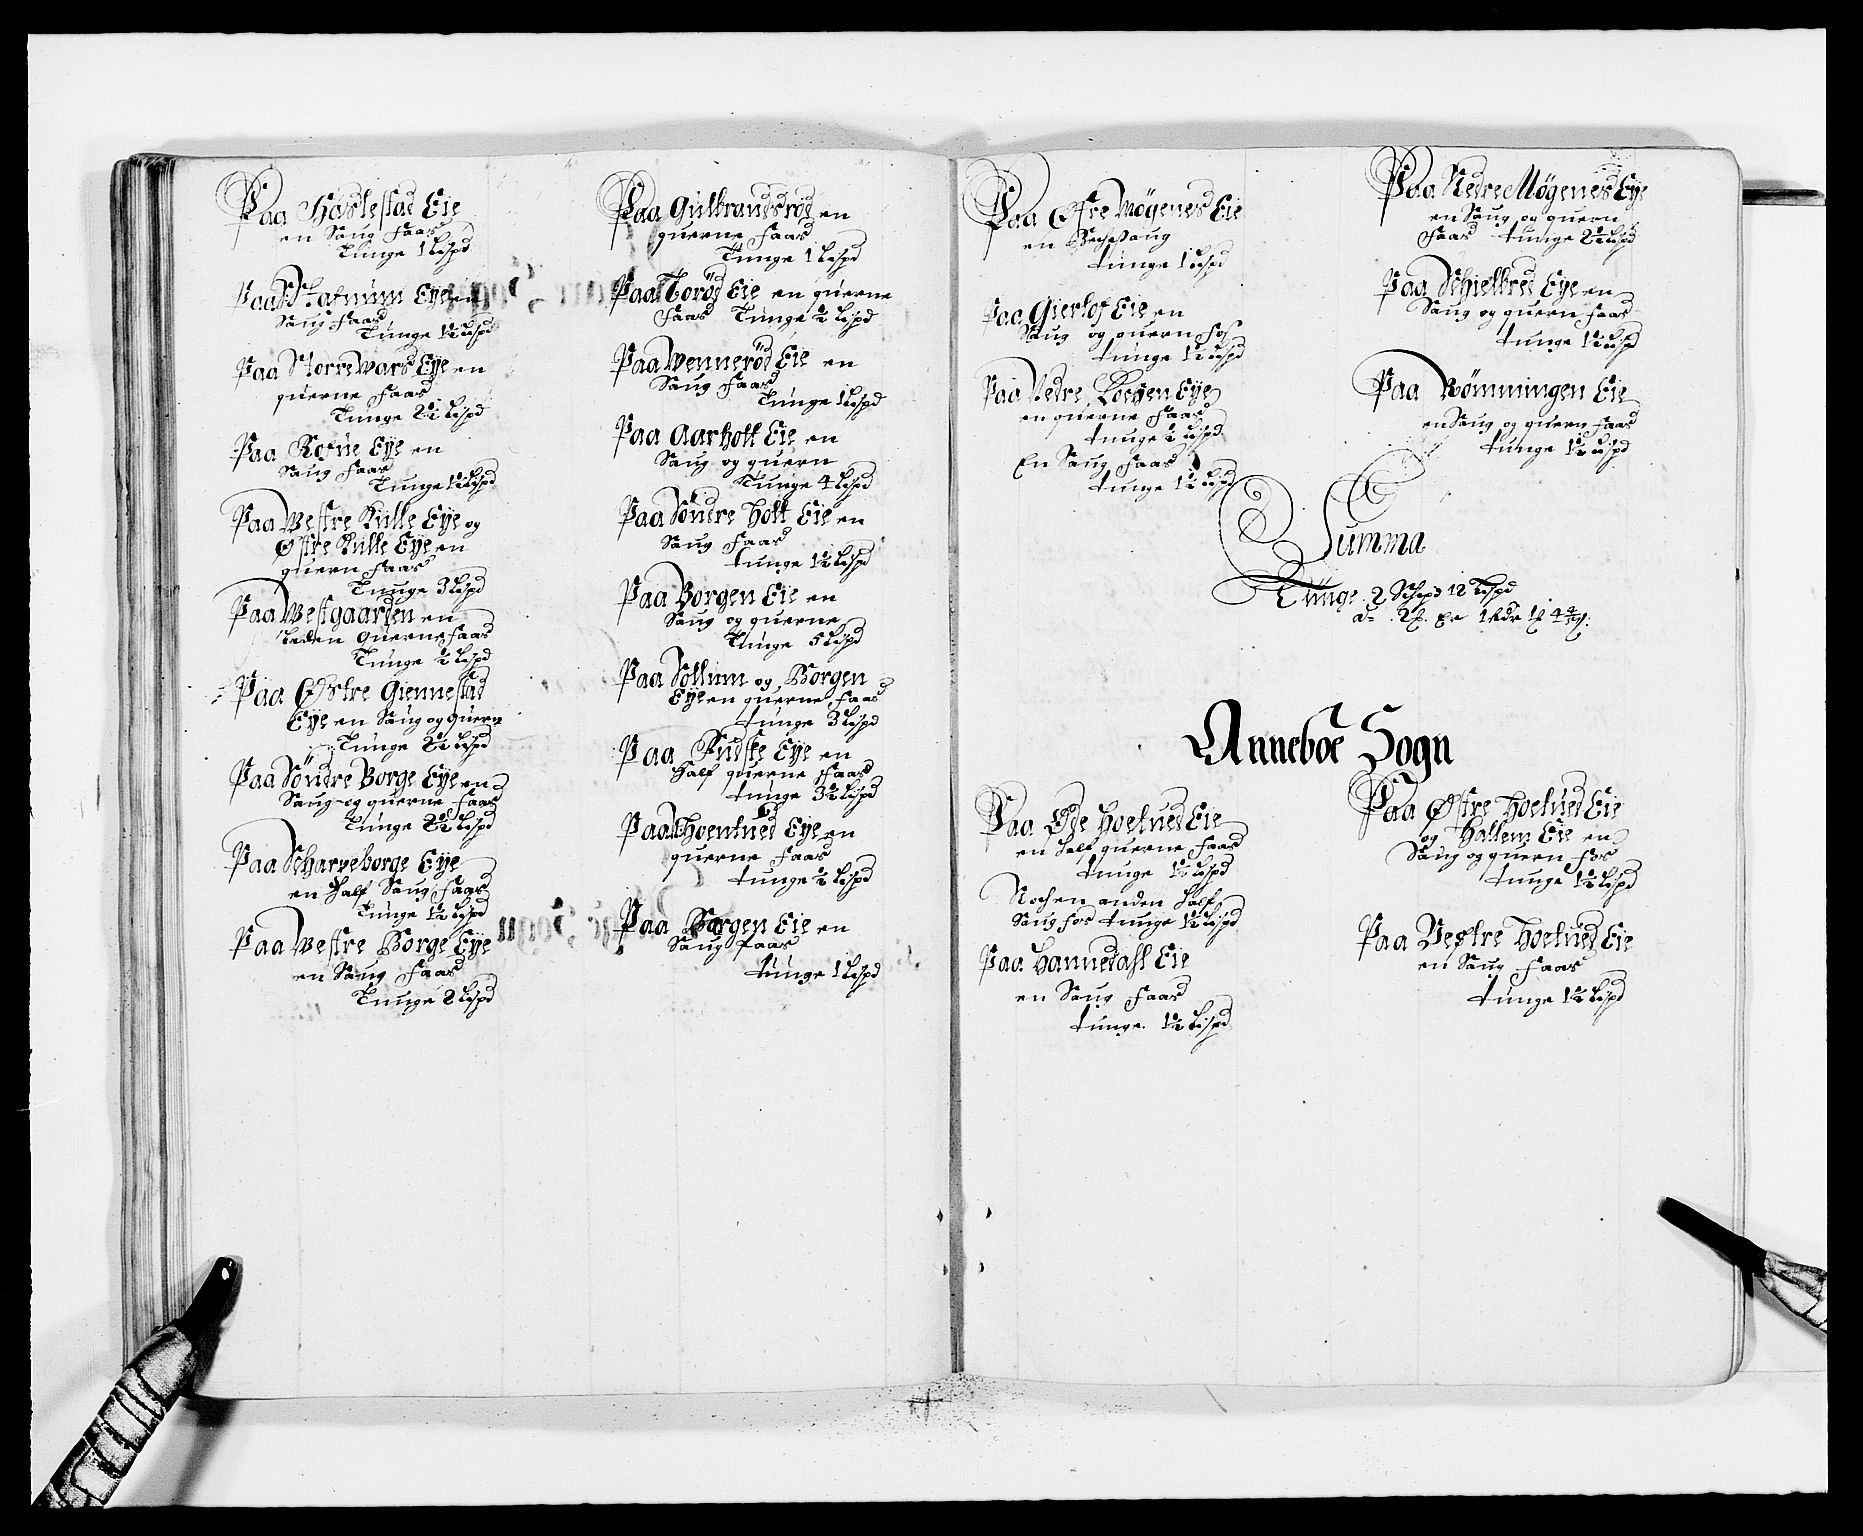 Paa Haslestad Eie
en Saug faas
Tunge 1 Lispd
Paa Eye en
Saug faas
Tunge 1½ Lispd
Paa Storre Wars Eye en
querne faas
Tunge 2½ Lispd
Paa Rofne Eye en
Saug faas
Tunge 1½ Lispd
Paa Westre Kulle Eye og
Østre Kulle Eye en
quern faas
Tunge 3 Lispd
Paa Westgaarden en
liden querne faas
Tunge ½ Lispd
Paa Østre Giennestad
Eye en Saug og quern
Tunge 2½ Lispd
Paa Söndre Borge Eye en
Saug og querne faas
Tunge 2½ Lispd
Paa Scharpeborge Eye
en Half Saug faas
Tunge 1½ Lispd
Paa Westre Borge Eye
en Saug faas
Tunge 2 Lispd
Paa Gulbrandsröd en
querne faas
Tunge 1 Lispd
Paa Toröd Eie en querne
faas Tunge ½ Lispd
Paa Wenneröd Eie en
Saug faas
Tunge 1 Lispd
Paa Aarholt Eie en
Saug og quern
Tunge 4 Lispd
Paa Söndre Holt Eie en
Saug faas
tunge 1½ Lispd
Paa Borgen Eie en
Saug og querne
Tunge 5 Lispd
Paa Sollum og Borgen
Eye en querne faas
tunge 3 Lispd
Paa Eye en
Half querne faas
tunge 3½ Lispd
Paa Eye en
querne faas
tunge ½ Lispd
Paa Borgen Eie en
Saug faas
tunge 1 Lispd
Paa Øfre Møgenes Eie
en
tunge 1 Lispd
Paa Gierlof Eie en
Saug og quern fos
tunge 1½ Lispd
Paa Nedre Eye
en querne faas
tunge ½ Lispd
En Saug faas
tunge 1½ Lispd
Paa Nedre Møgenes Eye
en Saug og quern
faas tunge 2½ Lispd
Paa Schielbred Eye en
Saug og quern faas
tunge 1½ Lispd
Paa Bömningen Eie
en Saug og quern faas
tunge 1½ Lispd
Summa
Tunge 2 Schpd 12 Lispd
Anneboe Sogn
Paa Øde Hoelned Eie
en half querne faas
tunge 1½ Lispd
Noch en anden half
Saug fos tunge 1½ Lispd
Paa Hannedahl Eie
en Saug faas
tunge 1½ Lispd
Paa Østre Hoelned Eie
og Hallem Eie en
Saug og quern fos
tunge 1½ Lispd
Paa Vestre Hoelned Eie
en Saug faas
tunge 1½ Lispd